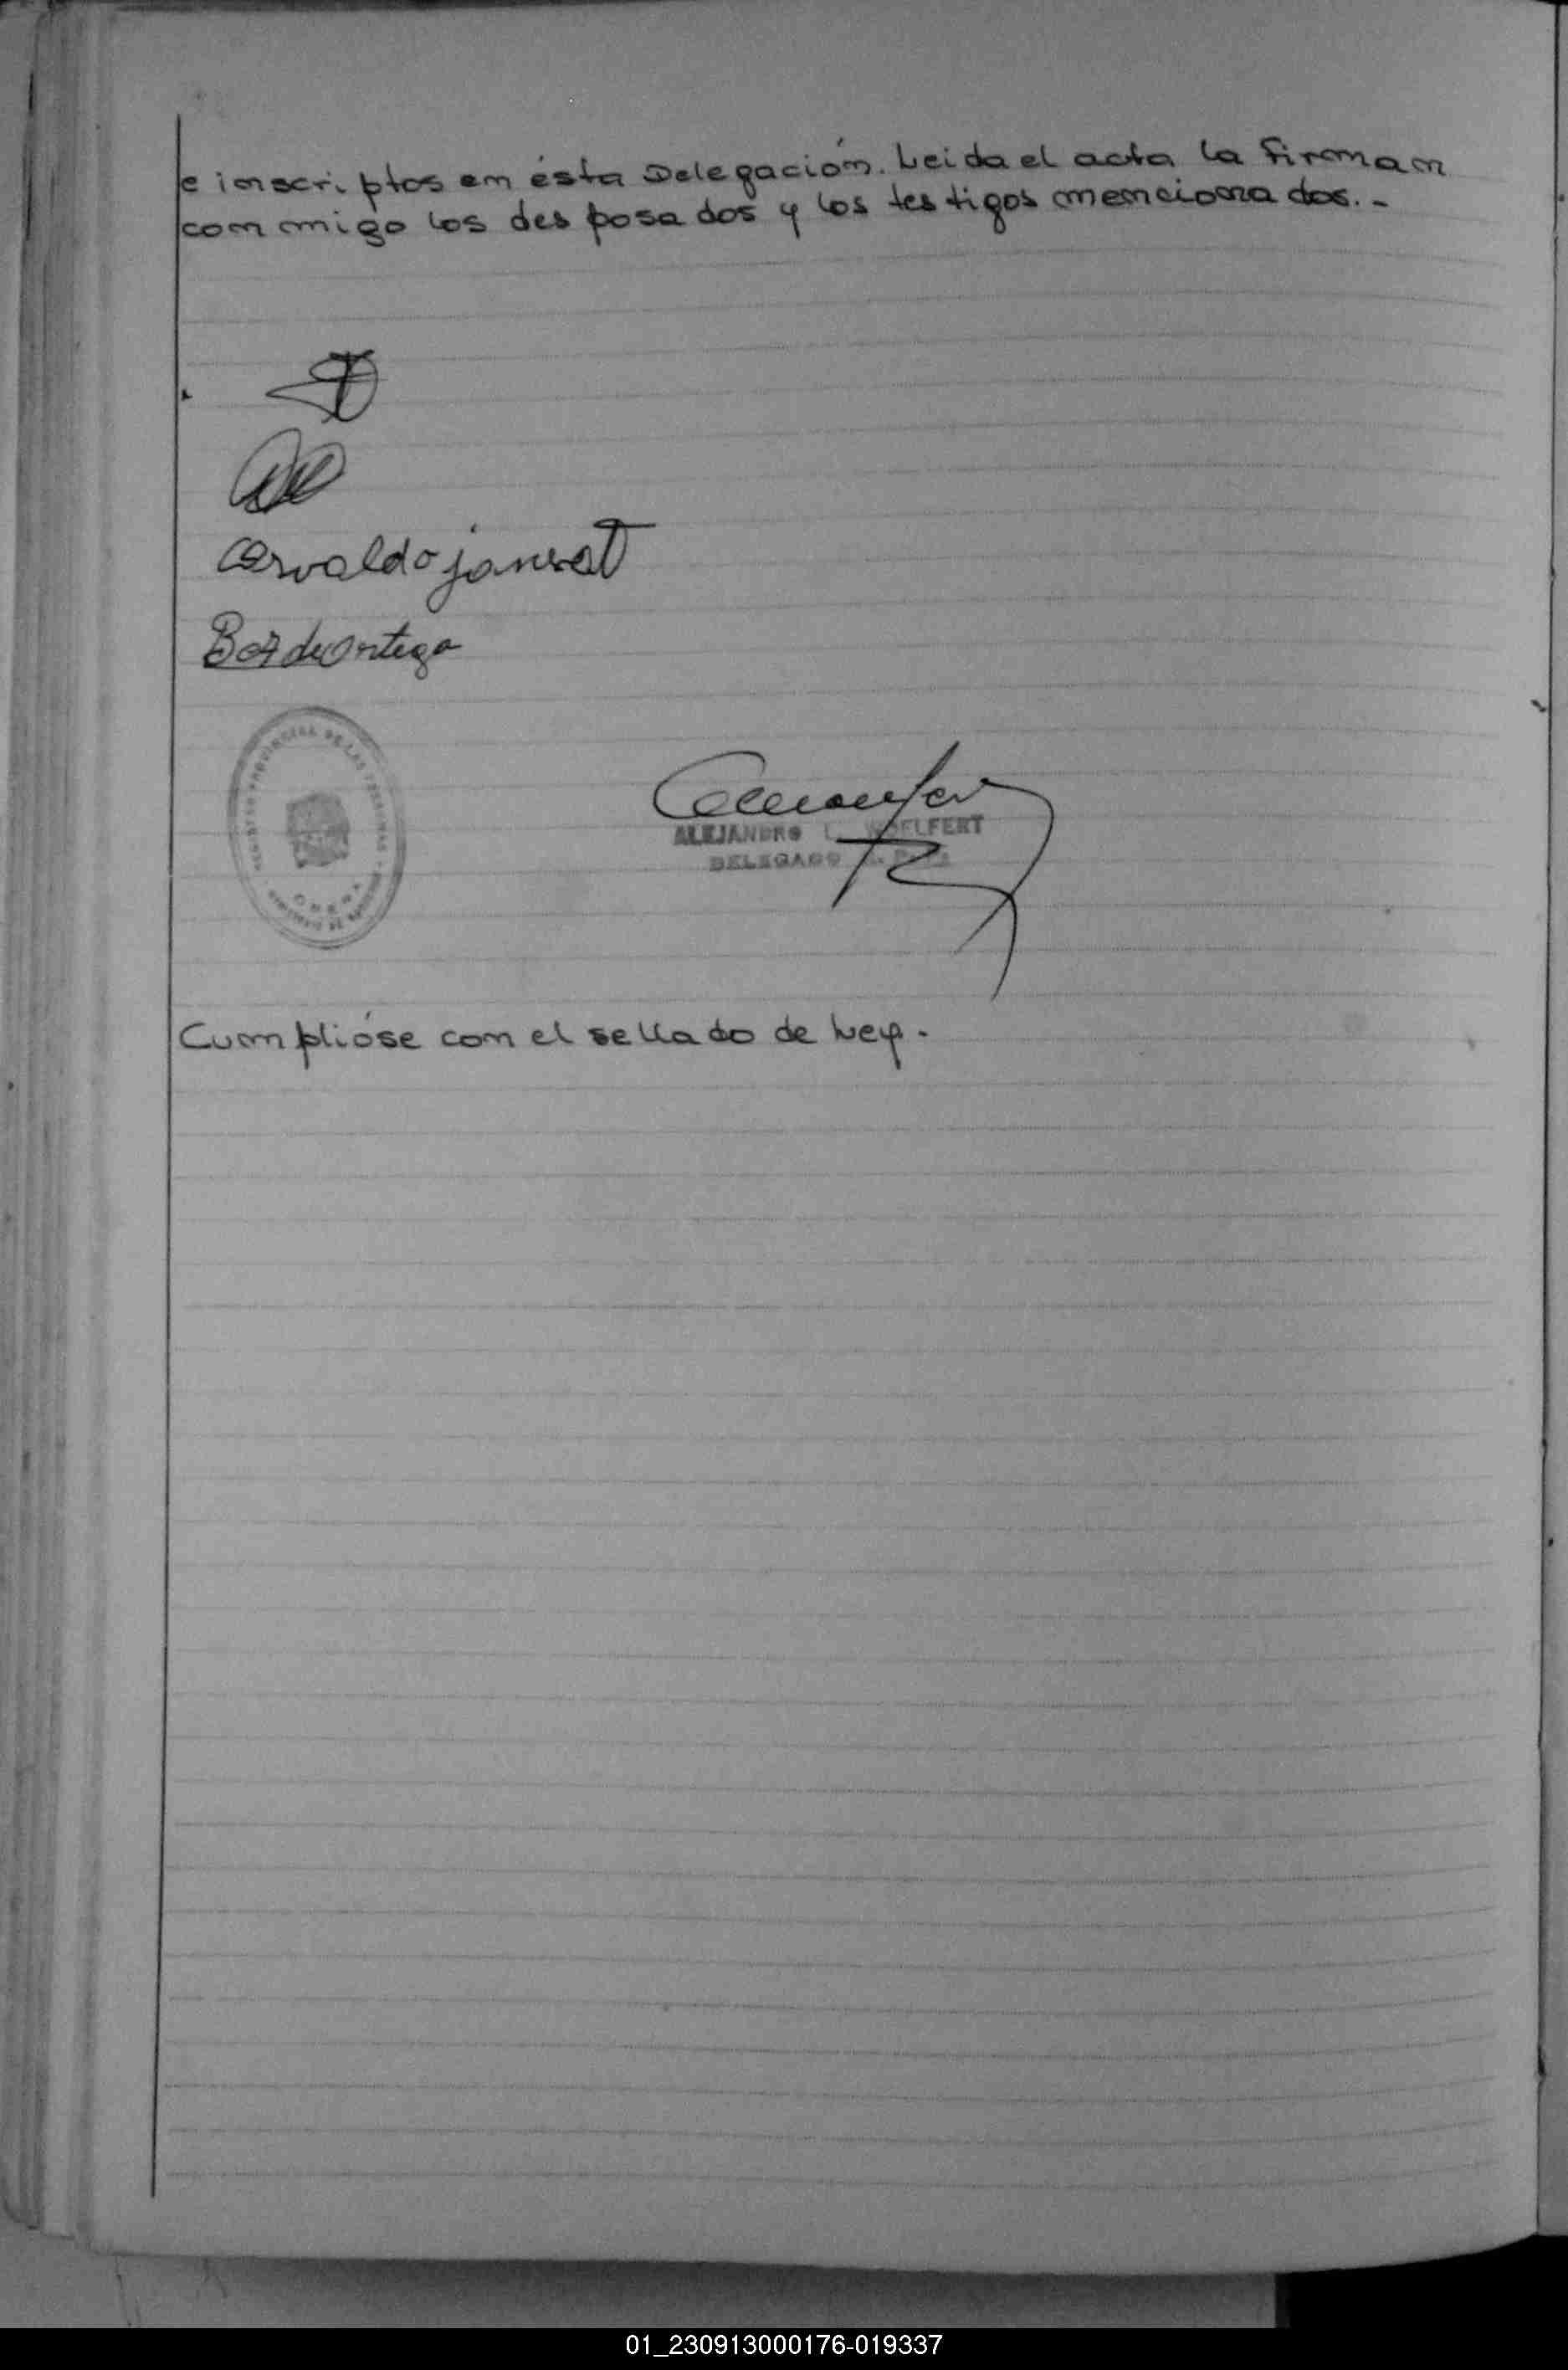 e inscriptos en ésta Delegación. Leida el acta la firman
conmigo los desposados y los testigos mencionados.-
Osvaldo jansat
B de Ortega
REGISTRO PROVINCIAL DE LAS PERSONAS
ALEJANDRO L. WOELFERT
DELEGADO
Cumplióse con el sellado de Ley.
01_230913000176-019337